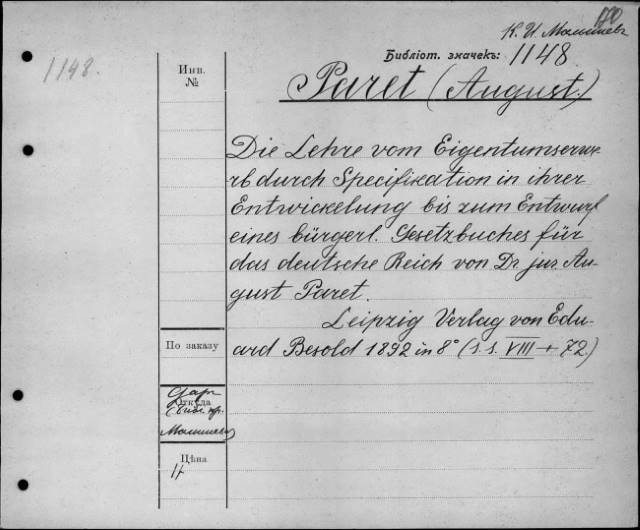 К. И. Малышевъ
1148.
Инв.
№
Библіот. значекъ: 1148
Paret (August.)
Die Lehre vom Eigentumserwe-
rb durch Specifikation in ihrer
Entwickelung bis zum Entwurf
eines bürgerl. Gesetzbuches für
das deutsche Reich von Dr jur. Au-
gust Paret.
Leipzig Verlag von Edu-
ard Besold 1892 in 8° (s.s. VIII + 72.)
По заказу
Даръ
Откуда
Малышева
Цѣна